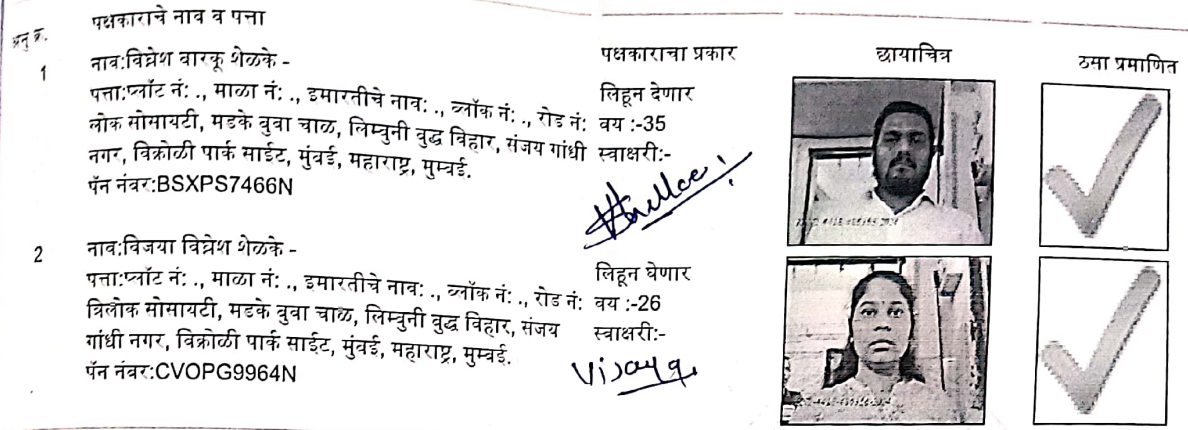 अनु क्र. पक्षकाराचे नाव व पत्ता पक्षकाराचा प्रकार छायाचित्र ठसा प्रमाणित
1 नाव:विघ्नेश वारकू शेळके -
पत्ता:प्लॉट नं: ., माळा नं: ., इमारतीचे नाव: ., ब्लॉक नं: ., रोड नं:
लोक सोसायटी, मडके बुवा चाळ, लिम्बुनी बुद्ध विहार, संजय गांधी
नगर, विक्रोळी पार्क साईट, मुंबई, महाराष्ट्र, मुम्बई.
पॅन नंबर:BSXPS7466N
लिहून देणार
वय :-35
स्वाक्षरी:-
2 नाव:विजया विघ्नेश शेळके -
पत्ता:प्लॉट नं: ., माळा नं: ., इमारतीचे नाव: ., ब्लॉक नं: ., रोड नं:
त्रिलोक सोसायटी, मडके बुवा चाळ, लिम्बुनी बुद्ध विहार, संजय
गांधी नगर, विक्रोळी पार्क साईट, मुंबई, महाराष्ट्र, मुम्बई.
पॅन नंबर:CVOPG9964N
लिहून घेणार
वय :-26
स्वाक्षरी:-
Vijaya